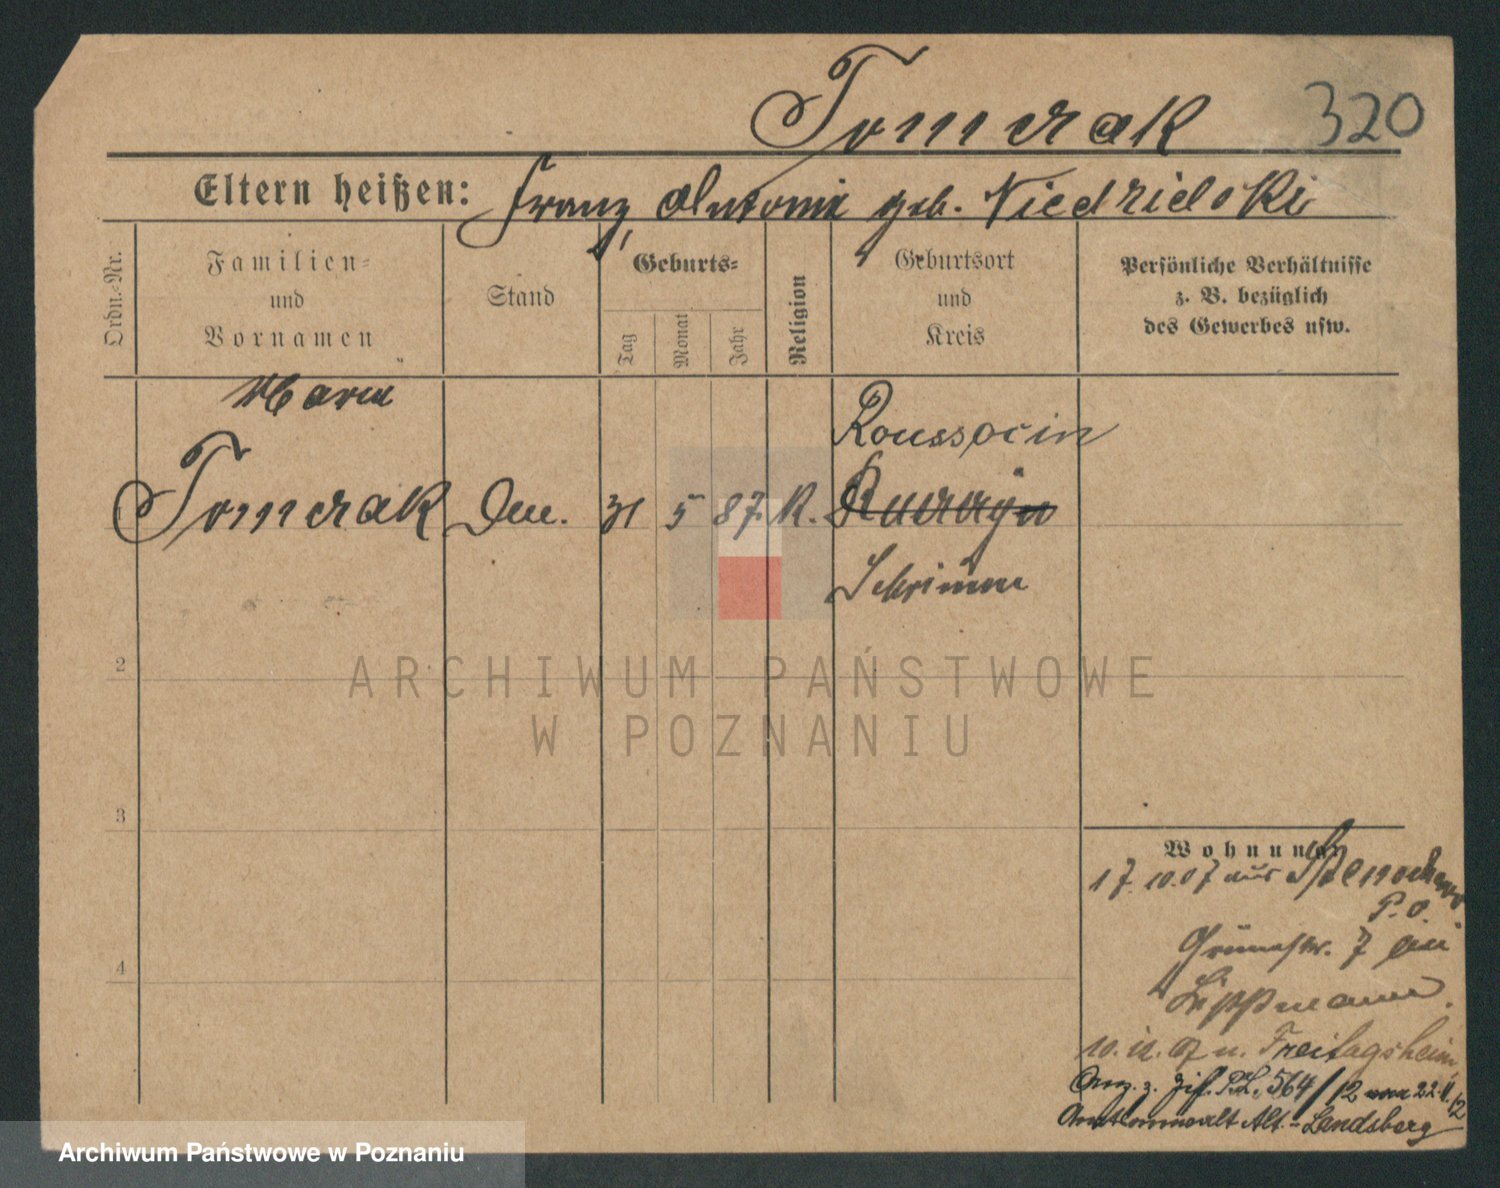 Tomczak
320
Eltern heißen: Franz, Antonie geb. Niedzielski
Ordn.-Nr.
Familien-
und
Vornamen
Stand
Geburts-
Tag
Monat
Jahr
Religion
Geburtsort
und
Kreis
Persönliche Verhältnisse
z. B. bezüglich
des Gewerbes usw.
Maria
Roussocin
Tomczak
31 5 87. K.
Schrimm
2
3
4
Wohnung
17.10.07 aus
P.O.
Grünestr. 7 bei
Lippmann.
10.12.07 n. Freitagsheim
564/12 vom 22.11.12
Amtsanwalt Alt-Landsberg
ARCHIWUM PAŃSTWOWE
W POZNANIU
Archiwum Państwowe w Poznaniu